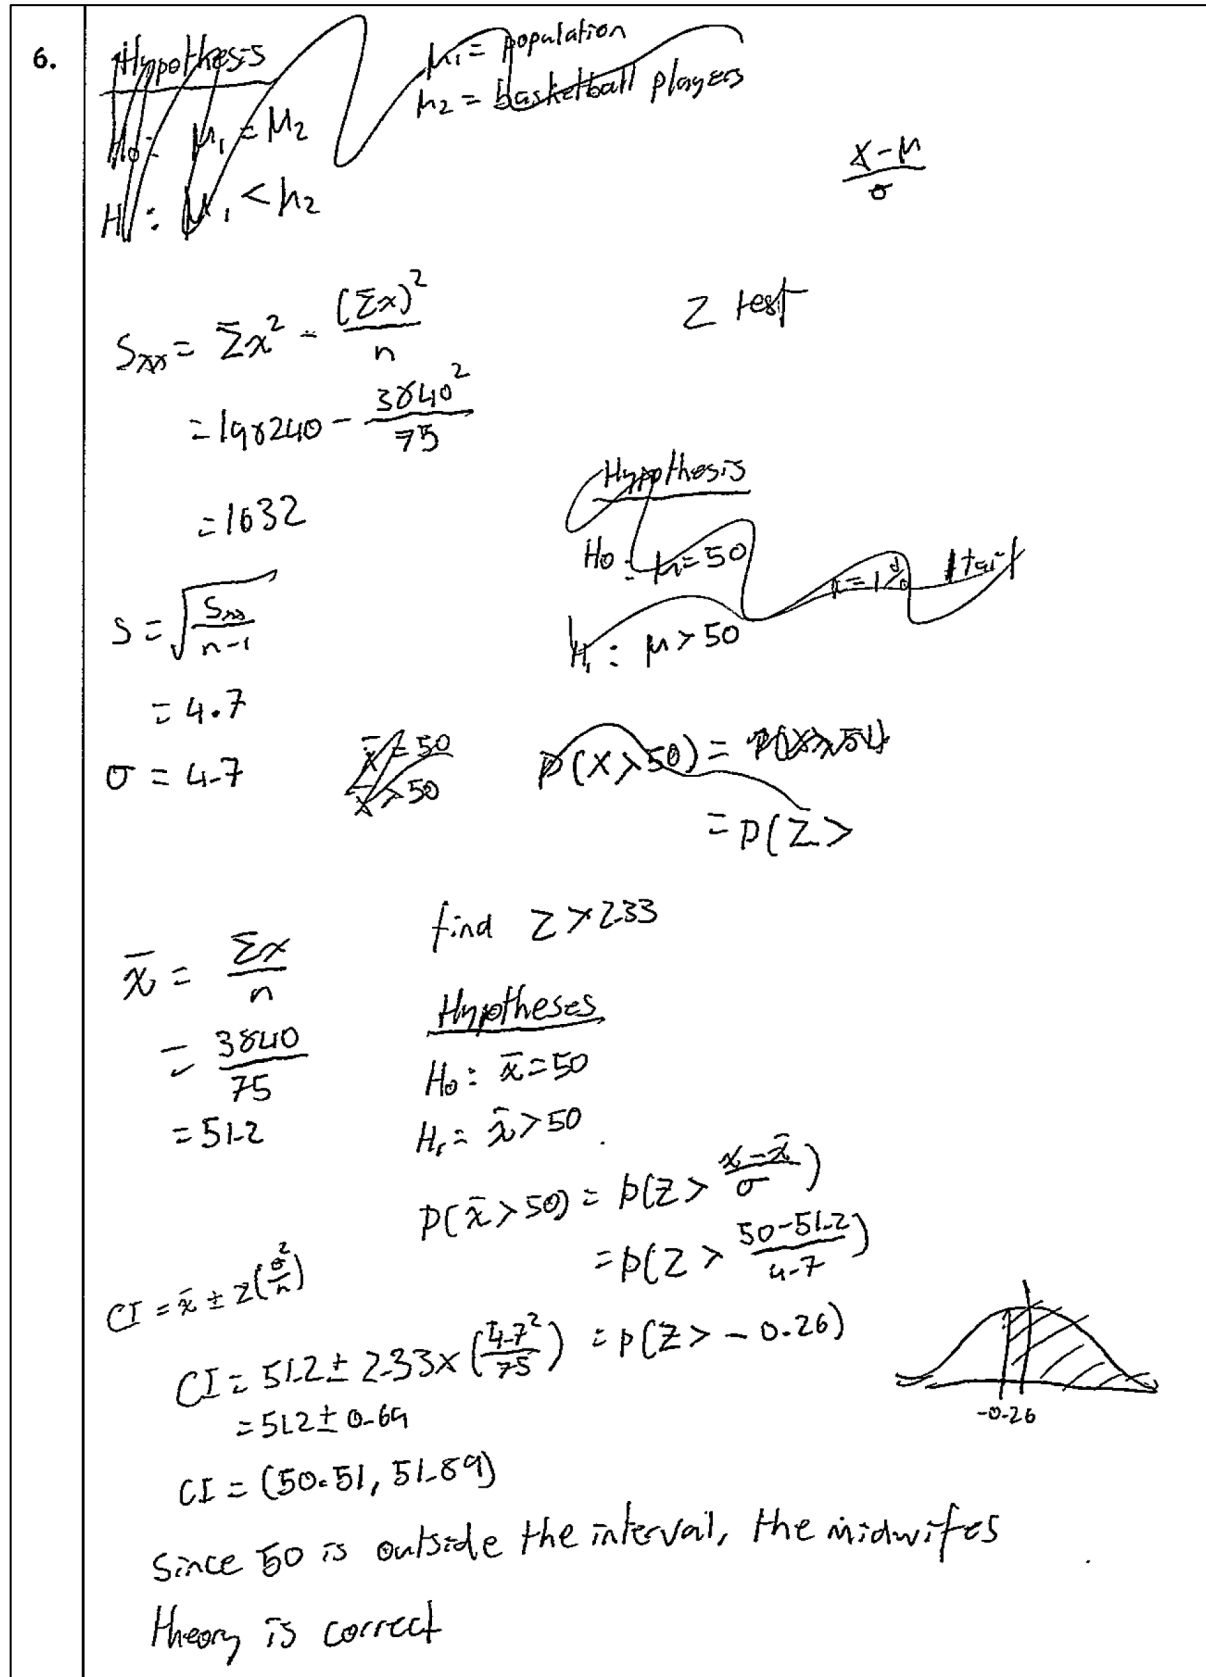 6.
Hypothesis
μ₁ = population
μ₂ = basketball players
H₀: μ₁ = μ₂
H₁: μ₁ < μ₂
x-μ/σ
Sxx = Σx² - (Σx)²/n
Z test
= 198240 - 3840²/75
= 1632
Hypothesis
H₀: μ = 50
α = 1% 1 tail
H₁: μ > 50
S = √(Sxx/n-1)
= 4.7
σ = 4.7
x̄ = 50
x̄ > 50
P(X > 50) =
= P(Z >
find Z > 2.33
x̄ = Σx/n
= 3840/75
= 51.2
Hypotheses
H₀: x̄ = 50
H₁ = x̄ > 50
P(x̄ > 50) = P(Z > x-x̄/σ)
= P(Z > 50-51.2/4.7)
= P(Z > -0.26)
-0.26
CI = x̄ ± Z(σ²/n)
CI = 51.2 ± 2.33 × (4.7²/75)
= 51.2 ± 0.69
CI = (50.51, 51.89)
Since 50 is outside the interval, the midwifes
theory is correct